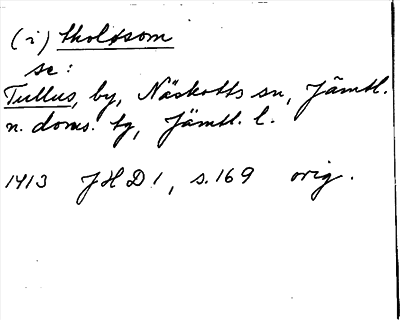 (i) tkolssom
se:
Tullus, by, Näskotts sn, Jämtl.
n. doms. tg, Jämtl. l.
1413 JHD 1, s. 169 orig.